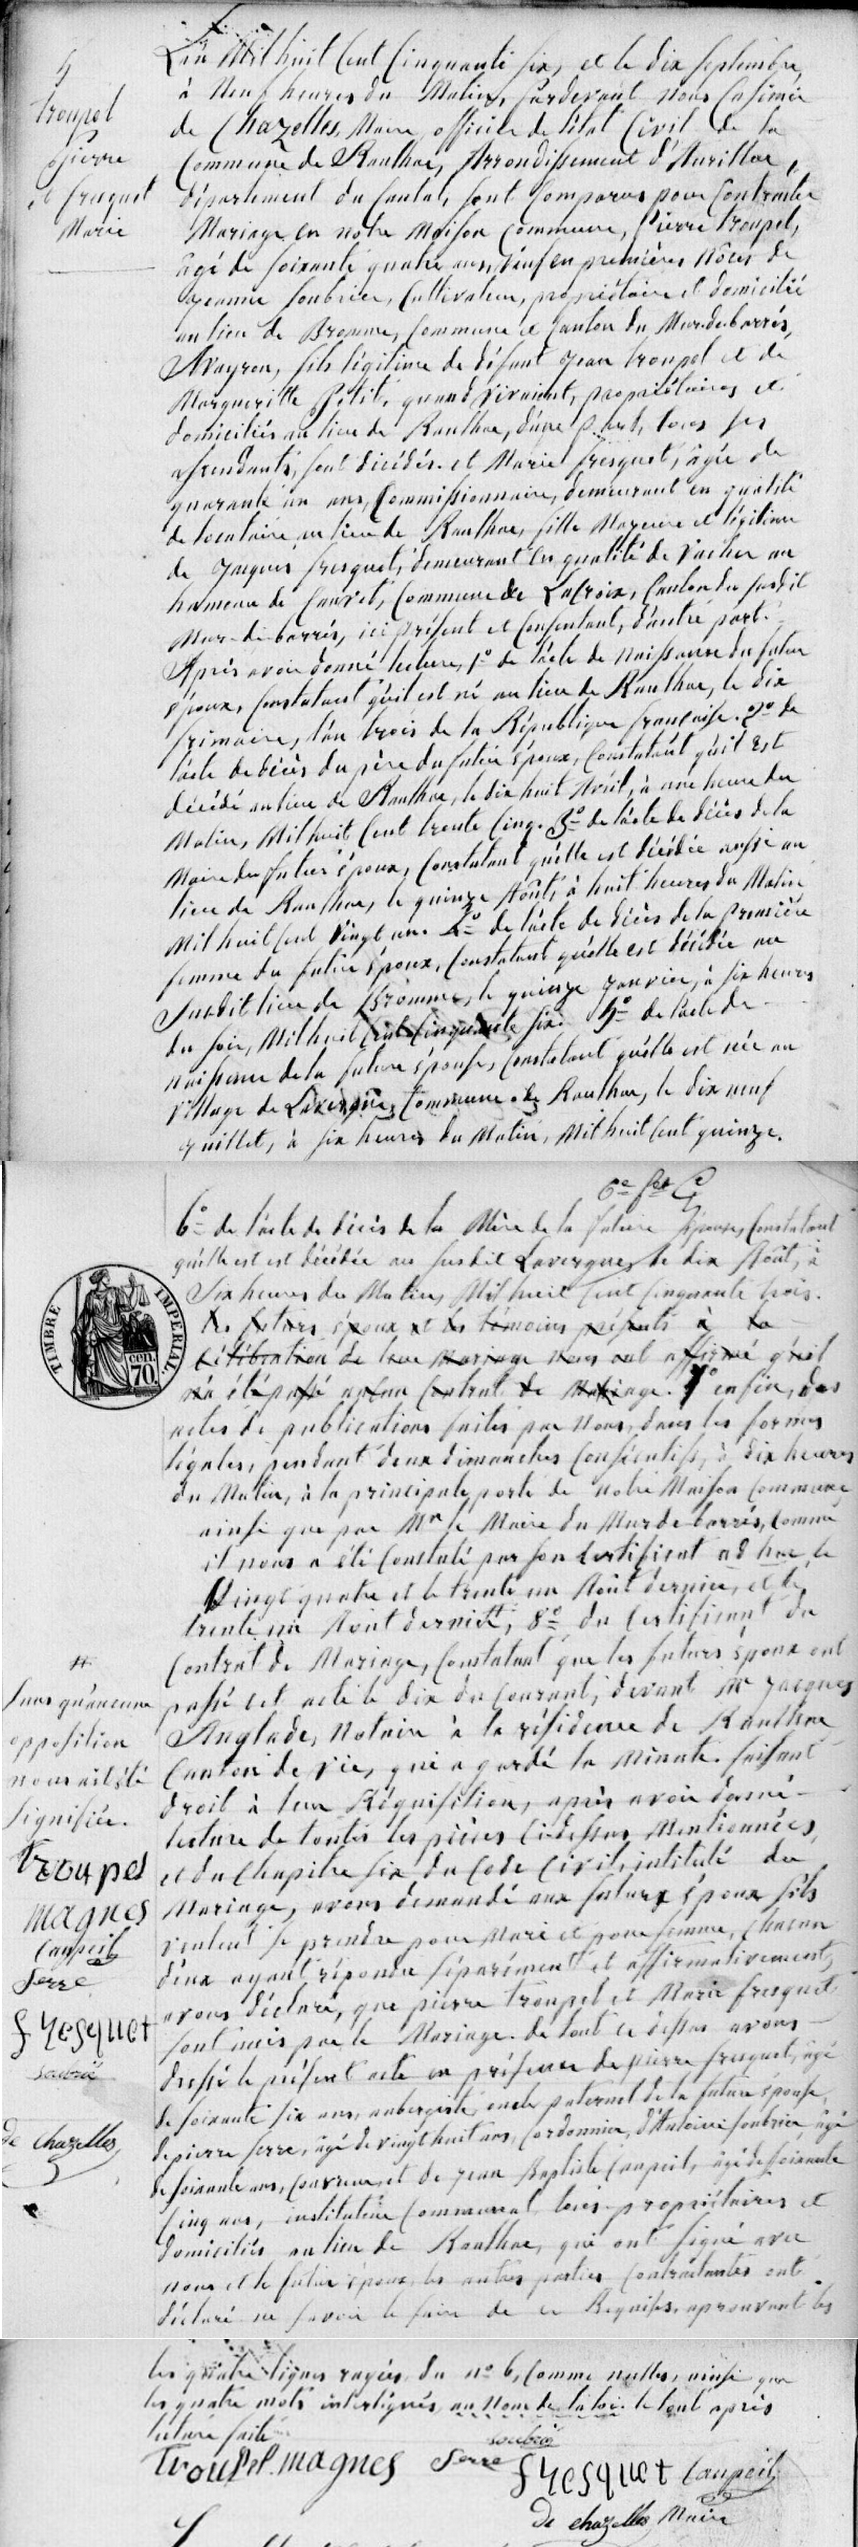 5
troupel
pierre
et fresquet
Marie
L'an Mil huit Cent Cinquante six, et le dix Septembre,
à Neuf heures du Matin, pardevant nous Casimir
de Chazelles, Maire, officier de l'état Civil de la
Commune de Raulhac, Arrondissement d'Aurillac,
département du Cantal, sont Comparus pour Contracter
Mariage en notre Maison Commune, Pierre troupel,
âgé de soixante quatre ans, veuf en premières Nôces de
jeanne Soubrier, Cultivateur, propriétaire et domicilié
au lieu de Bromme, Commune et Canton du Mur-de-barrés,
Aveyron, fils légitime de défunt jean troupel et de
Margueritte Petit, quand vivaient, propriétaires et
domiciliés au lieu de Raulhac, d'une part, tous ses
Ascendants, sont décédés. et Marie fresquet, âgée de
quarante un ans, Commissionnaire, demeurant en qualité
de locataire au lieu de Raulhac, fille Majeure et légitime
de jacques fresquet, demeurant en qualité de vacher au
hameau de Cauvet, Commune de LaCroix, Canton du susdit
Mur-de-barrés, ici présent et Consentant, d'autre part.
Après avoir donné lecture, 1º de l'acte de Naissance du futur
époux, Constatant qu'il est né au lieu de Raulhac, le dix
frimaire, l'an trois de la République française. 2º de
l'acte de décès du père du futur époux, Constatant qu'il est
décédé au lieu de Raulhac, le dix huit Avril, à une heure du
Matin, Mil huit Cent trente Cinq. 3º de l'acte de décès de la
Mère du futur époux, Constatant qu'elle est décédée aussi au
lieu de Raulhac, le quinze Août, à huit heures du Matin
Mil huit Cent vingt un. 4º de l'acte de décès de la Première
femme du futur époux, Constatant qu'elle est décédée au
Susdit lieu de Bromme, le quinze janvier, à six heures
du soir, Mil huit Cent Cinquante six. 5º de l'acte de
naissance de la future épouse, Constatant qu'elle est née au
village de Lavergne, Commune de Raulhac, le dix neuf
juillet, à six heures du Matin, Mil huit Cent quinze.
6º de l'acte de décès de la Mère de la future épouse, Constatant
qu'elle est est décédée au susdit Lavergne, le dix Août, à
Six heures du Matin, Mil huit Cent Cinquante trois.
TIMBRE IMPERIAL
cen.
70.
les futurs époux et les témoins présents à la
Célébration de leur mariage nous ont affirmé qu'il
n'a été passé aucun Contrat de Mariage. 7º enfin, des
actes de publications faites par Nous, dans les formes
légales, pendant deux dimanches Consécutifs, à dix heures
du Matin, à la principale porte de notre Maison Commune,
ainsi que par Mr le Maire du Mur de barrés, Comme
il nous a été Constaté par son Certificat ad hoc, le
Vingt quatre et le trente un Août dernier, et le
trente un Août dernier, 8º du Certificat du
Contrat de Mariage, Constatant que les futurs époux ont
passé cet acte le dix du Courant, devant Mr Jacques
Anglade, Notaire à la résidence de Raulhac
Canton de Vic, qui a gardé la Minute. faisant
droit à leur Réquisition, après avoir donné
lecture de toutes les pièces Ci-dessus Mentionnées,
et du Chapitre six, du Code Civil, intitulé du
Mariage, avons demandé aux futurs époux s'ils
veulent se prendre pour Mari et pour femme, Chacun
d'eux ayant répondu séparément et affirmativement,
avons déclaré, que pierre troupel et Marie fresquet
sont unis par le Mariage. de tout ce dessus avons
dressé le présent acte en présence de pierre fresquet, âgé
de soixante six ans, aubergiste, oncle paternel de la future épouse,
de pierre serre, âgé de vingt huit ans, Cordonnier, d'Antoine Soubrier, âgé
de soixante ans, Couvreur, et de jean Baptiste Caupeil, âgé de soixante
Cinq ans, instituteur Communal, tous propriétaires et
domiciliés au lieu de Raulhac, qui ont signé avec
nous et le futur époux, les autres parties Contractantes ont
déclaré ne savoir le faire de ce Requises. aprouvant les
#
Sans qu'aucune
opposition
nous ait été
Signifiée.
Troupel
magnes
Caupeil
Serre
fresquet
soubrié
de Chazelles
les quatre lignes rayées du nº 6, Comme nulles, ainsi que
les quatre mots interlignés, au Nom de la loi. le tout après
lecture faite
Troupel. magnes Serre soubrié fresquet Caupeil
De chazelles, Maire